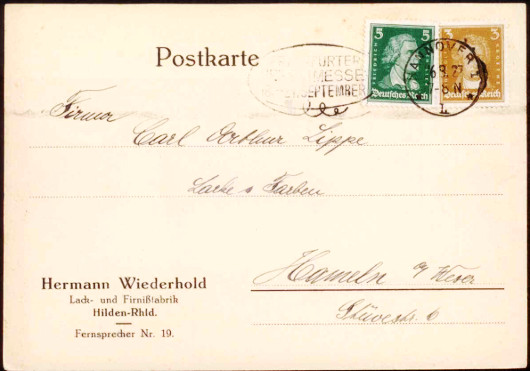 Postkarte
FURTER
MESSE
SEPTEMBER
5 5
FRIEDRICH
Deutsches Reich
3 3
Deutsches Reich
HANNOVER
9.27
-8 N
1
Firma
Carl Arthur Lippe
Lacke & Farben
Hameln a/ Weser
Stüvestr. 6
Hermann Wiederhold
Lack- und Firnißfabrik
Hilden-Rhld.
Fernsprecher Nr. 19.